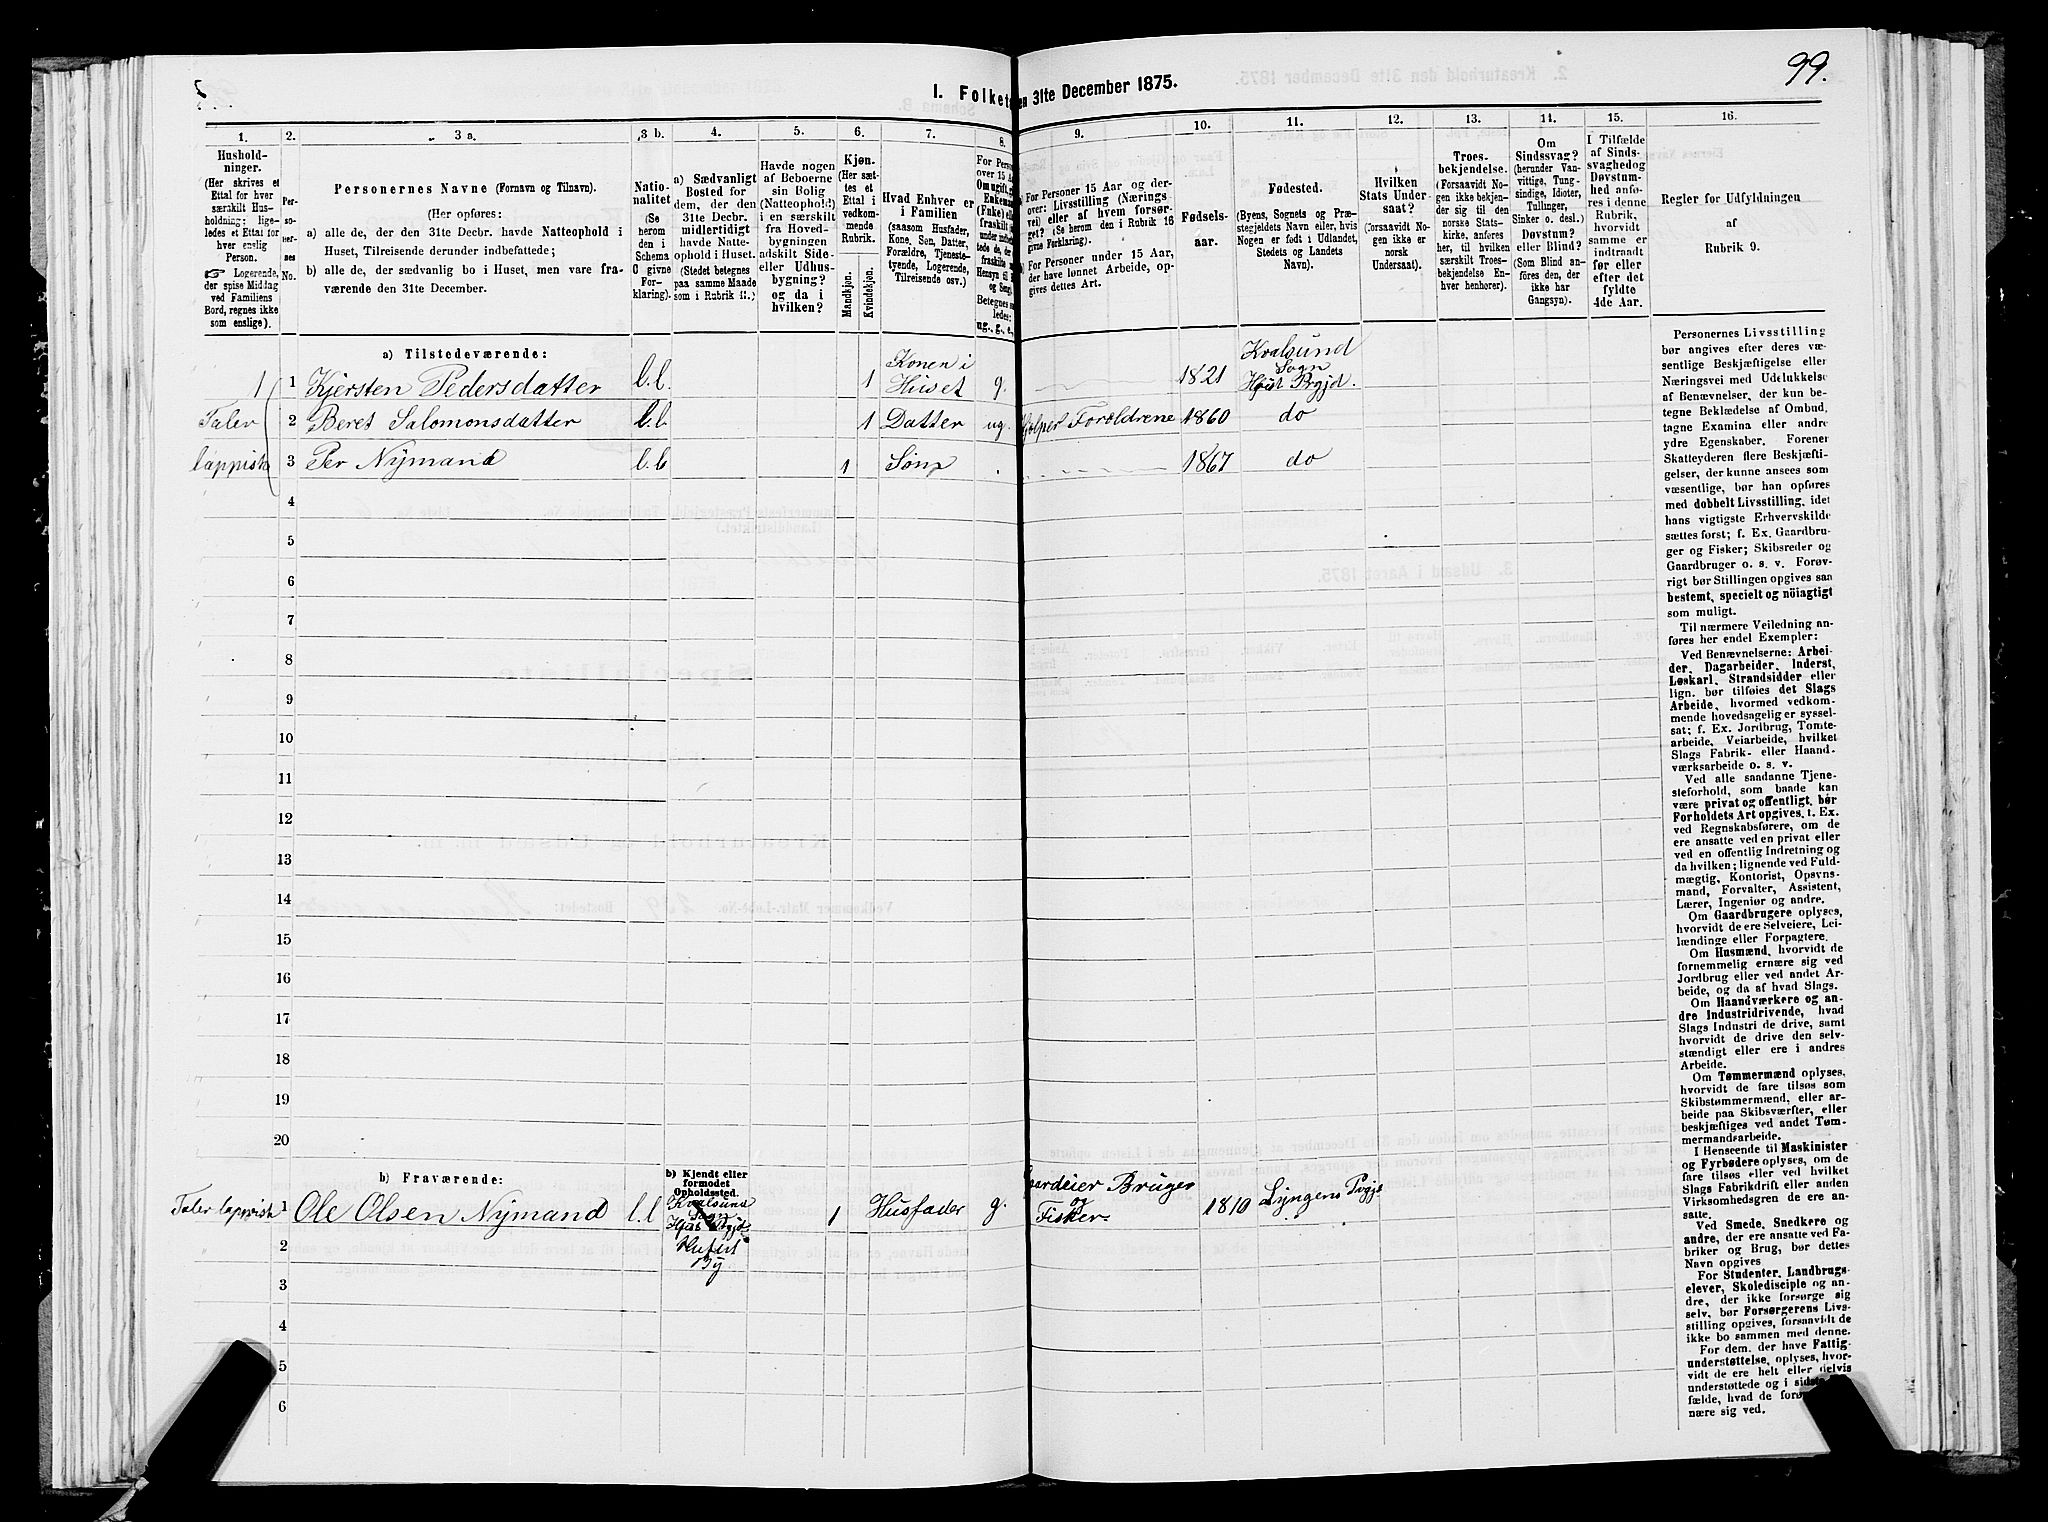 99.
I. Folketa
en 31te December 1875.
1.
2.
3 a.
3 b.
4.
5.
6.
7.
8.
9.
10.
11.
12.
13.
14.
15.
16.
Hushold-
ninger.
(Her skrives et
Ettal for hver
særskilt Hus-
holdning; lige-
ledes et Ettal for
hver enslig
Person.
☞ Logerende,
der spise Middag
ved Familiens
Bord, regnes ikke
som enslige).
Per-
so-
ner-
nes
No.
Personernes Navne (Fornavn og Tilnavn).
(Her opføres:
a) alle de, der den 31te Decbr. havde Natteophold i
Huset, Tilreisende derunder indbefattede;
b) alle de, der sædvanlig bo i Huset, men vare fra-
værende den 31te December.
Natio-
nalitet
(Se
herom
den i
Schema
C givne
For-
klaring).
a) Sædvanligt
Bosted for
dem, der den
31te Decbr.
midlertidigt
havde Natte-
ophold i Huset.
(Stedet betegnes
paa samme Maade
som i Rubrik 11.)
Havde nogen
af Beboerne
sin Bolig
(Natteophold)
i en særskilt
fra Hoved-
bygningen
adskilt Side-
eller Udhus-
bygning?
og da i
hvilken?
Kjøn.
(Her sæt-
tes et
Ettal i
vedkom-
mende
Rubrik.
Mandkjøn.
Kvindekjøn.
Hvad Enhver er
i Familien
(saasom Husfader,
Kone, Søn, Datter,
Forældre, Tjeneste-
tyende, Logerende,
Tilreisende osv.)
For Person
over 15 Aar
Omugift, g
Enkeman
(Fnke) elle
fraskilt
Betegnes sa
ledes:
ug., g., e.,
For Personer 15 Aar og der-
over: Livsstilling (Nærings
vei) eller af hvem forsør-
get? (Se herom den i Rubrik 16
givne Forklaring).
For Personer under 15 Aar,
der have lønnet Arbeide, op-
gives dettes Art.
Fødsels-
aar.
Fødested.
(Byens, Sognets og Præ-
stegjeldets Navn eller, hvis
Nogen er født i Udlandet,
Stedets og Landets
Navn).
Hvilken
Stats Under-
saat?
(forsaavidt No-
gen ikke er
norsk
Undersaat).
Troes-
bekjendelse.
(Forsaavidt No-
gen ikke bekjen-
der sig til den
norske Stats-
kirke, anføres
her, til hvilken
særskilt Troes-
bekjendelse En-
hver henhører).
Om
Sindssvag?
(herunder Van-
vittige, Tung-
sindige, Idioter,
Tullinger,
Sinker o. desl.)
Døvstum?
eller Blind?
(Som Blind an-
føres den, der
ikke har
Gangsyn).
I Tilfælde
af Sinds-
svaghedog
Døvstum-
hed anfø-
res i denne
Rubrik,
hvorvidt
samme er
indtraadt
før eller
efter det
fyldte
4de Aar.
Regler for Udfyldningen
af
Rubrik 9.
a) Tilstedeværende:
1
Taler
lappisk
1 Kjersten Pedersdatter l.l. 1 Konen i Huset g. 1821 Kvalsund Sogn Hft Prgjd.
2 Beret Salomonsdatter l.l 1 Datter ug. Hjælper Forældrene 1860 do
3 Per Nymand l.l 1 Søn 1867 do
4
5
6
7
8
9
10
11
12
13
14
15
16
17
18
19
20
b) Fraværende:
b) Kjendt eller
formodet
Opholdssted.
Taler lappisk 1 Ole Olsen Nymand l.l Kvalsund Sogn 1 Husfader g. Gardeier Bruger og Fisker 1810 Lyngens Prgjd
By
2
3
4
5
6
Personernes Livsstilling
bør angives efter deres væ-
sentlige Beskjæftigelse eller
Næringsvei med Udelukkelse
af Benævnelser, der kun be-
tegne Beklædelse af Ombud,
tagne Examina eller andre
ydre Egenskaber. Forener
Skatteyderen flere Beskjæfti-
gelser, der kunne ansees som
væsentlige, bør han opføres
med dobbelt Livsstilling, idet
hans vigtigste Erhvervskilde
sættes først; f. Ex. Gaardbru-
ger og Fisker; Skibsreder og
Gaardbruger o. s. v. Forøv-
rigt bør Stillingen opgives saa
bestemt, specielt og nöiagtigt
som muligt.
Til nærmere Veiledning an-
føres her endel Exempler:
Ved Benævnelserne: Arbei-
der, Dagarbeider, Inderst,
Løskarl, Strandsidder eller
lign. bør tilføies det Slags
Arbeide, hvormed vedkom-
mende hovedsagelig er syssel-
sat; f. Ex. Jordbrug, Tomte-
arbeide, Veiarbeide, hvilket
Slags Fabrik- eller Haand-
værksarbeide o. s. v.
Ved alle saadanne Tjene-
steforhold, som baade kan
være privat og offentligt, bør
Forholdets Art opgives, t. Ex.
ved Regnskabsførere, om de
ere ansatte ved en privat eller
ved en offentlig Indretning og
da hvilken; lignende ved Fuld-
mægtig, Kontorist, Opsyns-
mand, Forvalter, Assistent,
Lærer, Ingeniør og andre.
Om Gaardbrugere oplyses,
hvorvidt de ere Selveiere, Lei-
lændinge eller Forpagtere.
Om Husmænd, hvorvidt de
fornemmelig ernære sig ved
Jordbrug eller ved andet Ar-
beide, og da af hvad Slags.
Om Haandværkere og an-
dre Industridrivende, hvad
Slags Industri de drive, samt
hvorvidt de drive den selv-
stændigt eller ere i andres
Arbeide.
Om Tømmermænd oplyses,
hvorvidt de fare tilsøs som
Skibstømmermænd, eller ar-
beide paa Skibsværfter, eller
beskjæftiges ved andet Tøm-
mermandsarbeide.
I Henseende til Maskinister
og Fyrbødere oplyses, om de
fare tilsøs eller ved hvilket
Slags Fabrikdrift eller anden
Virksomhedsgren de ere an-
satte.
Ved Smede, Snedkere og
andre, der ere ansatte ved Fa-
briker og Brug, bør dettes
Navn opgives
For Studenter, Landbrugs-
elever, Skoledisciple og an-
dre, der ikke forsørge sig
selv, bør Forsørgerens Livs-
stilling opgives, forsaavidt de
ikke bo sammen med denne.
For dem, der have Fattig-
understøttelse, oplyses, hvor-
vidt de ere helt eller delvis
understøttede og i sidste
fælde, hvad de forø
nære sig ved.